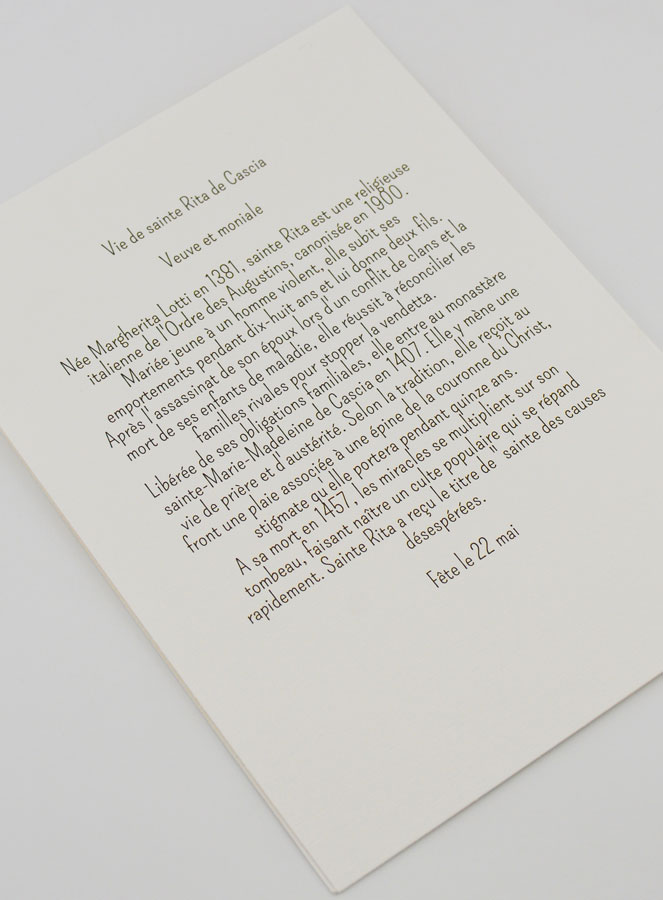 Vie de sainte Rita de Cascia
Veuve et moniale
Née Margherita Lotti en 1381, sainte Rita est une religieuse
italienne de l'Ordre des Augustins, canonisée en 1900.
Mariée jeune à un homme violent, elle subit ses
emportements pendant dix-huit ans et lui donne deux fils.
Après l'assassinat de son époux lors d'un conflit de clans et la
mort de ses enfants de maladie, elle réussit à réconcilier les
familles rivales pour stopper la vendetta.
Libérée de ses obligations familiales, elle entre au monastère
sainte-Marie-Madeleine de Cascia en 1407. Elle y mène une
vie de prière et d'austérité. Selon la tradition, elle reçoit au
front une plaie associée à une épine de la couronne du Christ,
stigmate qu'elle portera pendant quinze ans.
A sa mort en 1457, les miracles se multiplient sur son
tombeau, faisant naître un culte populaire qui se répand
rapidement. Sainte Rita a reçu le titre de" sainte des causes
désespérées.
Fête le 22 mai